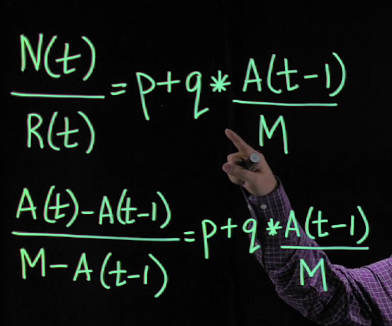 N(t)/R(t) = p+q * A(t-1)/M
A(t)-A(t-1)/M-A(t-1) = p+q * A(t-1)/M